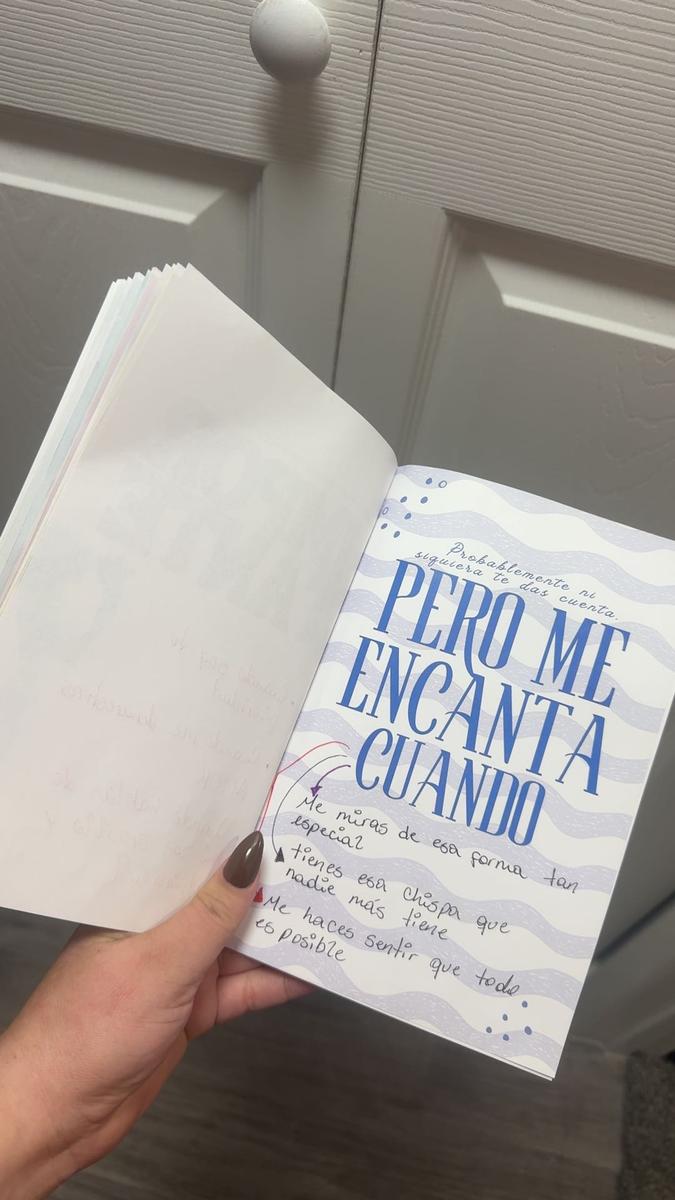 Probablemente ni
siquiera te das cuenta.
PERO ME
ENCANTA
CUANDO
Me miras de esa forma tan
especial
tienes esa chispa que
nadie más tiene
Me haces sentir que todo
es posible